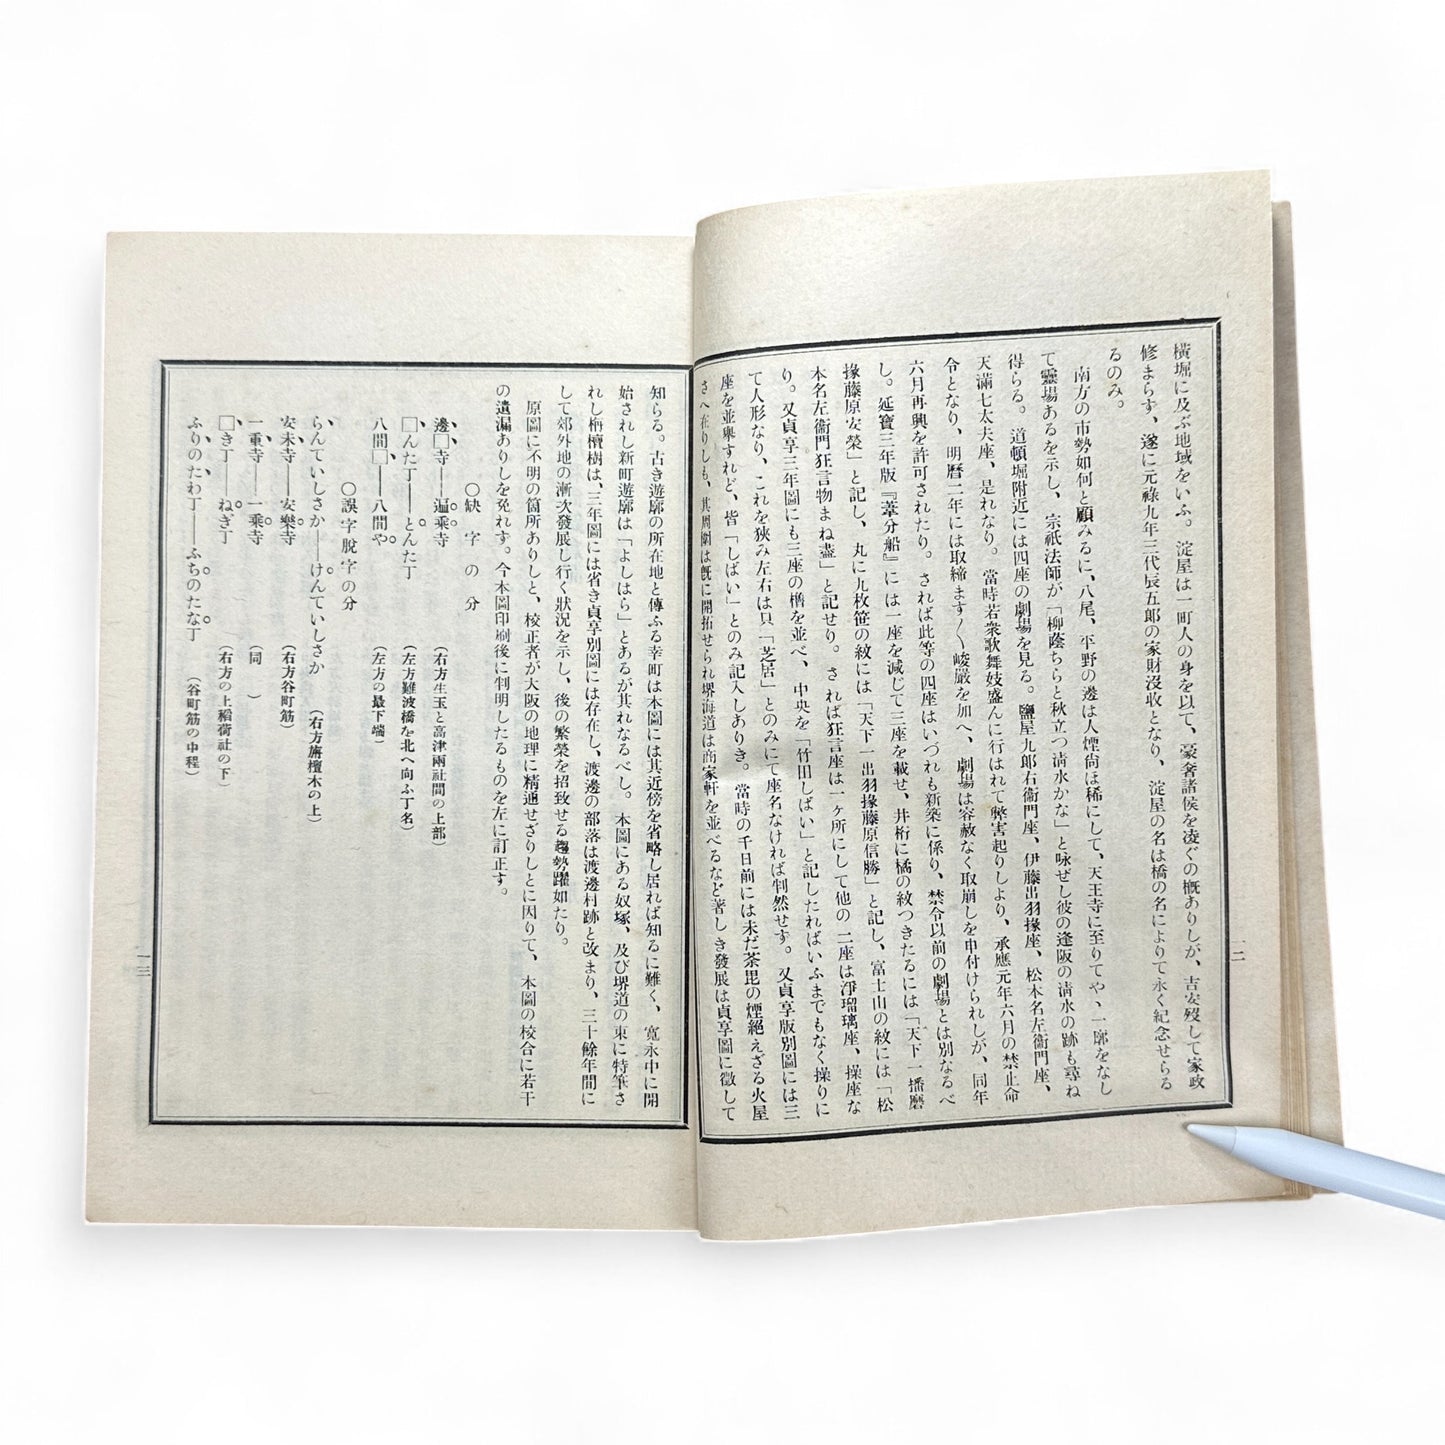 橫堀に及ぶ地域をいふ。淀屋は一町人の身を以て、豪奢諸侯を凌ぐの槪ありしが、吉安歿して家政
修まらす、遂に元祿九年三代辰五郎の家財沒收となり、淀屋の名は橋の名によりて永く紀念せらる
るのみ。
南方の市勢如何と顧みるに、八尾、平野の邊は人煙尙ほ稀にして、天王寺に至りてや、一廓をなし
て靈場あるを示し、宗祇法師が「柳蔭ちらと秋立つ淸水かな」と咏ぜし彼の逢阪の淸水の跡も尋ね
得らる。道頓堀附近には四座の劇場を見る。鹽屋九郎右衞門座、伊藤出羽掾座、松本名左衞門座、
天滿七太夫座、是れなり。當時若衆歌舞妓盛んに行はれて弊害起りしより、承應元年六月の禁止命
令となり、明曆二年には取締ます〱峻嚴を加へ、劇場は容赦なく取崩しを申付けられしが、同年
六月再興を許可されたり。されば此等の四座はいづれも新築に係り、禁令以前の劇場とは別なるべ
し。延寶三年版『葦分船』には一座を減じて三座を載せ、井桁に橘の紋つきたるには「天下一播磨
掾藤原安榮」と記し、丸に九枚笹の紋には「天下一出羽掾藤原信勝」と記し、富士山の紋には「松
本名左衞門狂言物まね盡」と記せり。されば狂言座は一ヶ所にして他の二座は淨瑠璃座、操座な
り。又貞享三年圖にも三座の櫓を並べ、中央を「竹田しばい」と記したればいふまでもなく操りに
て人形なり、これを狹み左右は只「芝居」とのみにて座名なければ判然せず。又貞享版別圖には三
座を並擧すれど、皆「しばい」とのみ記入しありき。當時の千日前には未だ荼毘の煙絕えざる火屋
さへ在りしも、其周圍は旣に開拓せられ堺海道は商家軒を並べるなど著しき發展は貞享圖に徵して
一二
知らる。古き遊廓の所在地と傳ふる幸町は本圖には其近傍を省略し居れば知るに難く、寬永中に開
始されし新町遊廓は「よしはら」とあるが其れなるべし。本圖にある奴塚、及び堺道の東に特筆さ
れし栴檀樹は、三年圖には省き貞享別圖には存在し、渡邊の部落は渡邊村跡と改まり、三十餘年間に
して郊外地の漸次發展し行く狀況を示し、後の繁榮を招致せる趨勢躍如たり。
原圖に不明の箇所ありしと、校正者が大阪の地理に精通せざりしとに因りて、本圖の校合に若干
の遺漏ありしを免れす。今本圖印刷後に判明したるものを左に訂正す。
〇缺字の分
邊□寺――遍乘寺 (右方生玉と高津兩社間の上部)
□んた丁――とんた丁 (左方難波橋を北へ向ふ丁名)
八間□――八間や (左方の最下端)
〇誤字脫字の分
らんていしさか――けんていしさか (右方旃檀木の上)
安未寺――安樂寺 (右方谷町筋)
一重寺――一乘寺 (同 )
□き丁――ねぎ丁 (右方の上稻荷社の下)
ふりのたわ丁――ふちのたな丁 (谷町筋の中程)
一三